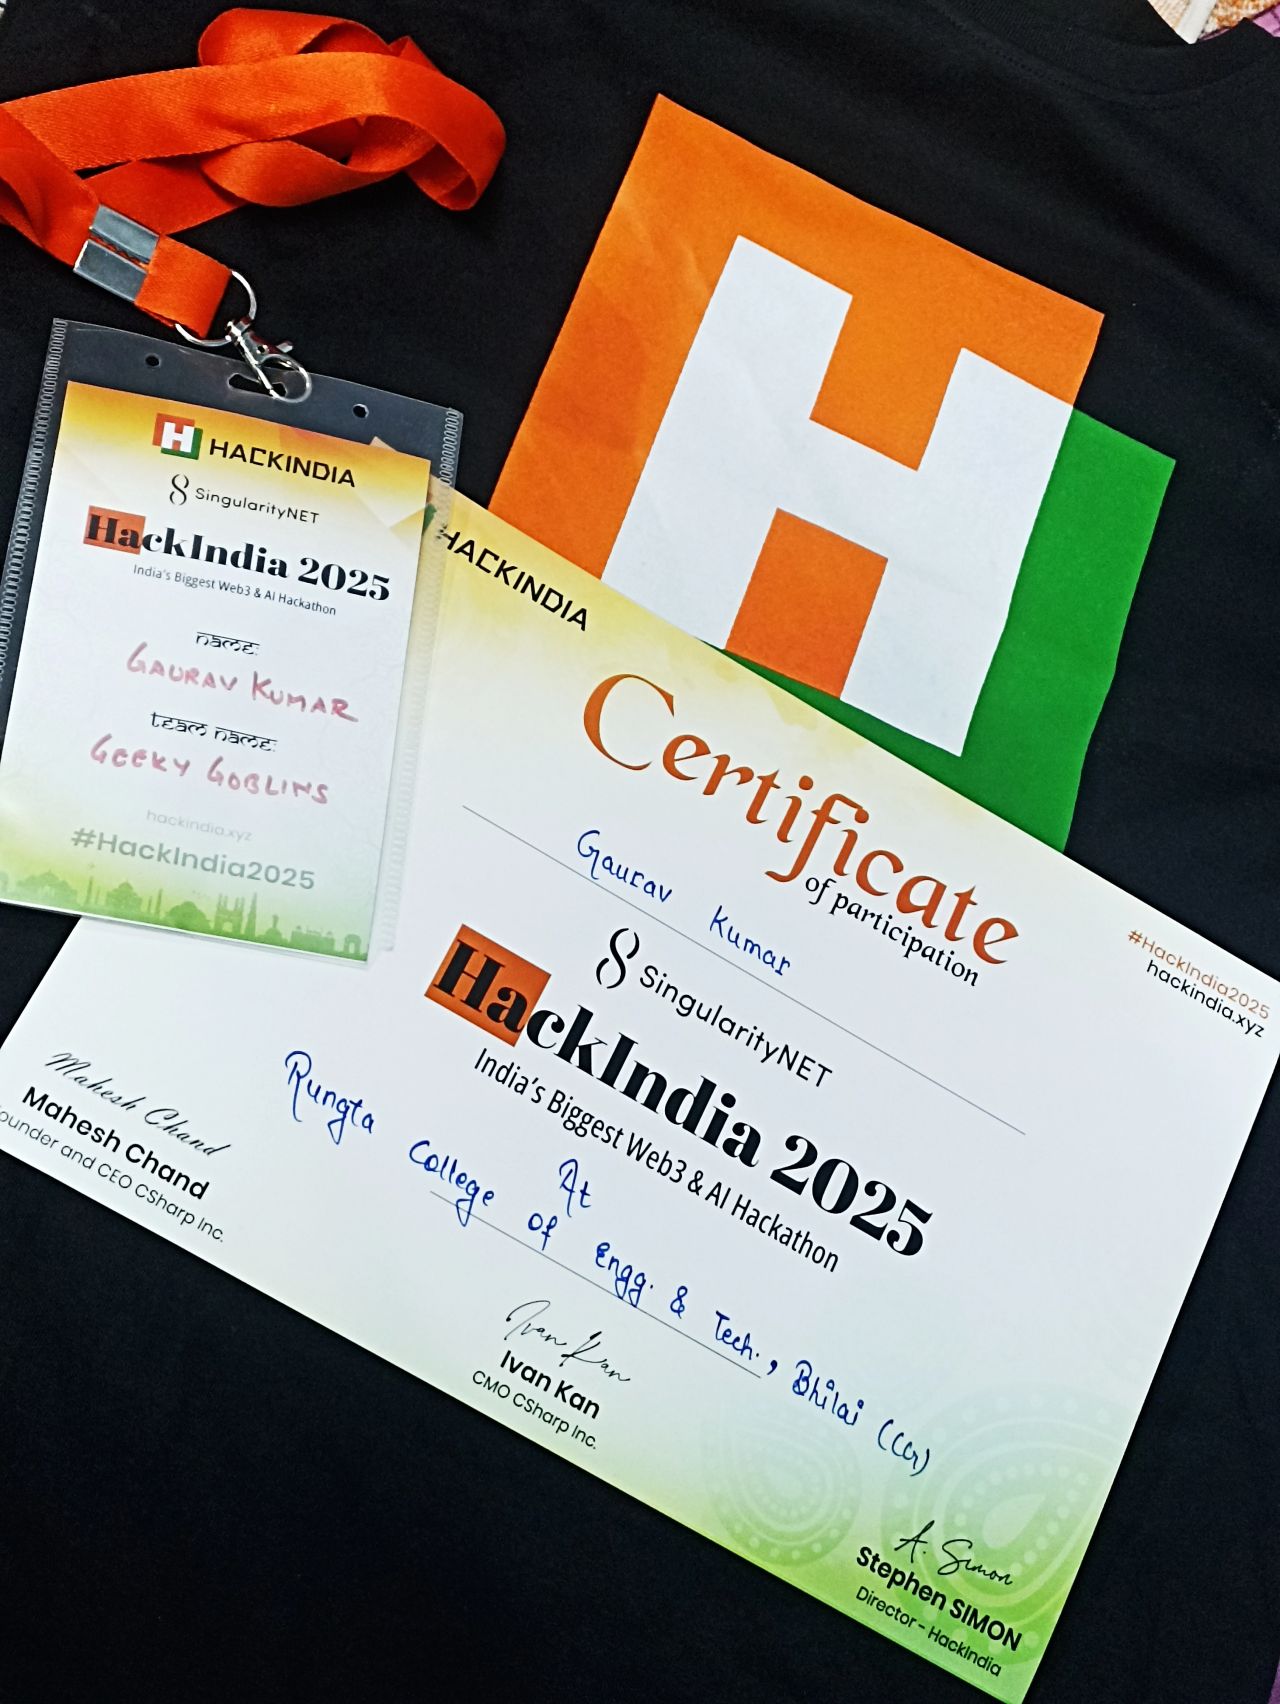 H
HACKINDIA
SingularityNET
HackIndia 2025
India's Biggest Web3 & AI Hackathon
Name:
GAURAV KUMAR
Team Name:
GEEKY GOBLINS
hackindia.xyz
#HackIndia2025
HACKINDIA
#HackIndia2025
hackindia.xyz
Certificate
of participation
Gaurav Kumar
SingularityNET
HackIndia 2025
India's Biggest Web3 & AI Hackathon
At
Rungta College of Engg. & Tech., Bhilai (CG)
Mahesh Chand
Mahesh Chand
ounder and CEO CSharp Inc.
Ivan Kan
Ivan Kan
CMO CSharp Inc.
A. Simon
Stephen SIMON
Director - HackIndia
H